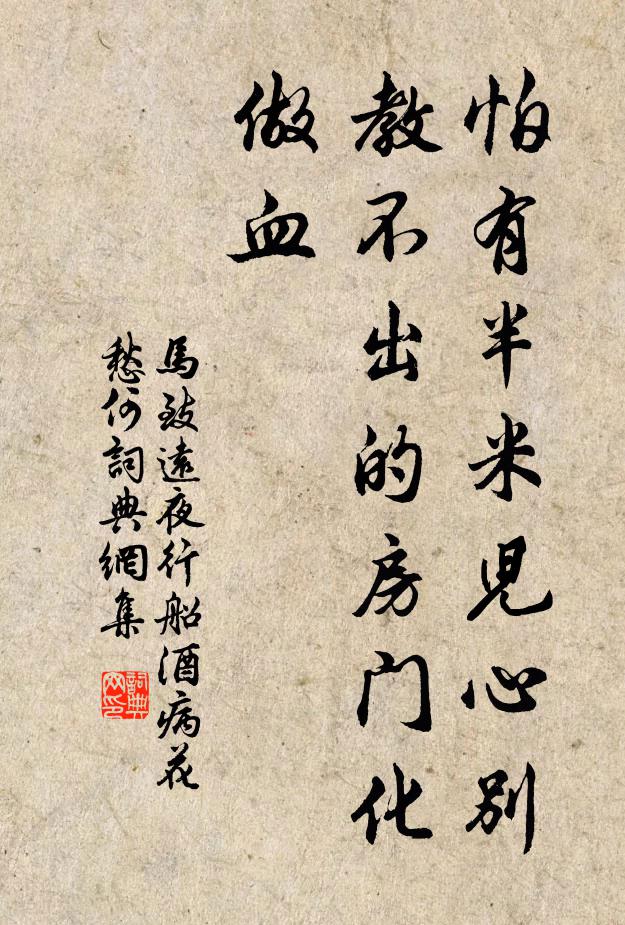 怕有半米児心別
教不出的房门化
做血
馬致遠夜行船酒病花
愁何詞典網集
詞典
网印